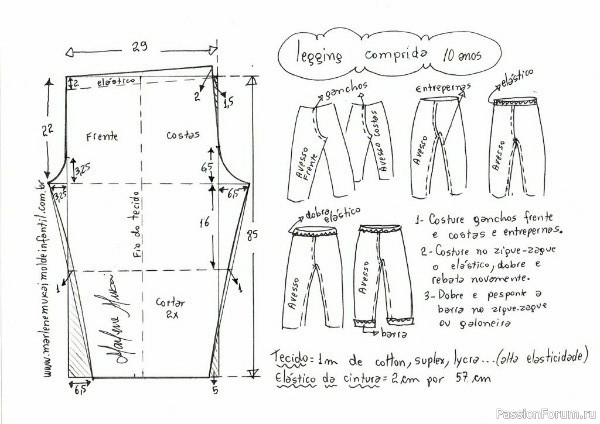 29
legging comprida 10 anos
2 elástico
2
1,5
22
Frente
Costas
3,25
6,5
3,25
6,5
Fio do tecido
16
85
1
1
Cortar
2x
Marlene Mukai
6,5
5
www.marlenemukaimoldeinfantil.com.br
ganchos
Avesso
Frente
Avesso Costas
Entrepernas
Avesso
elástico
Avesso
dobra
elástico
Avesso
Avesso
barra
1- Costure ganchos frente
e costas e entrepernas.
2- Costure no zigue-zague
o elástico, dobre e
rebata novamente.
3- Dobre e pesponte a
barra no zigue-zague
ou galoneira
Tecido = 1m de cotton, suplex, lycra... (alta elasticidade)
Elástico da cintura = 2 cm por 57 cm
PassionForum.ru